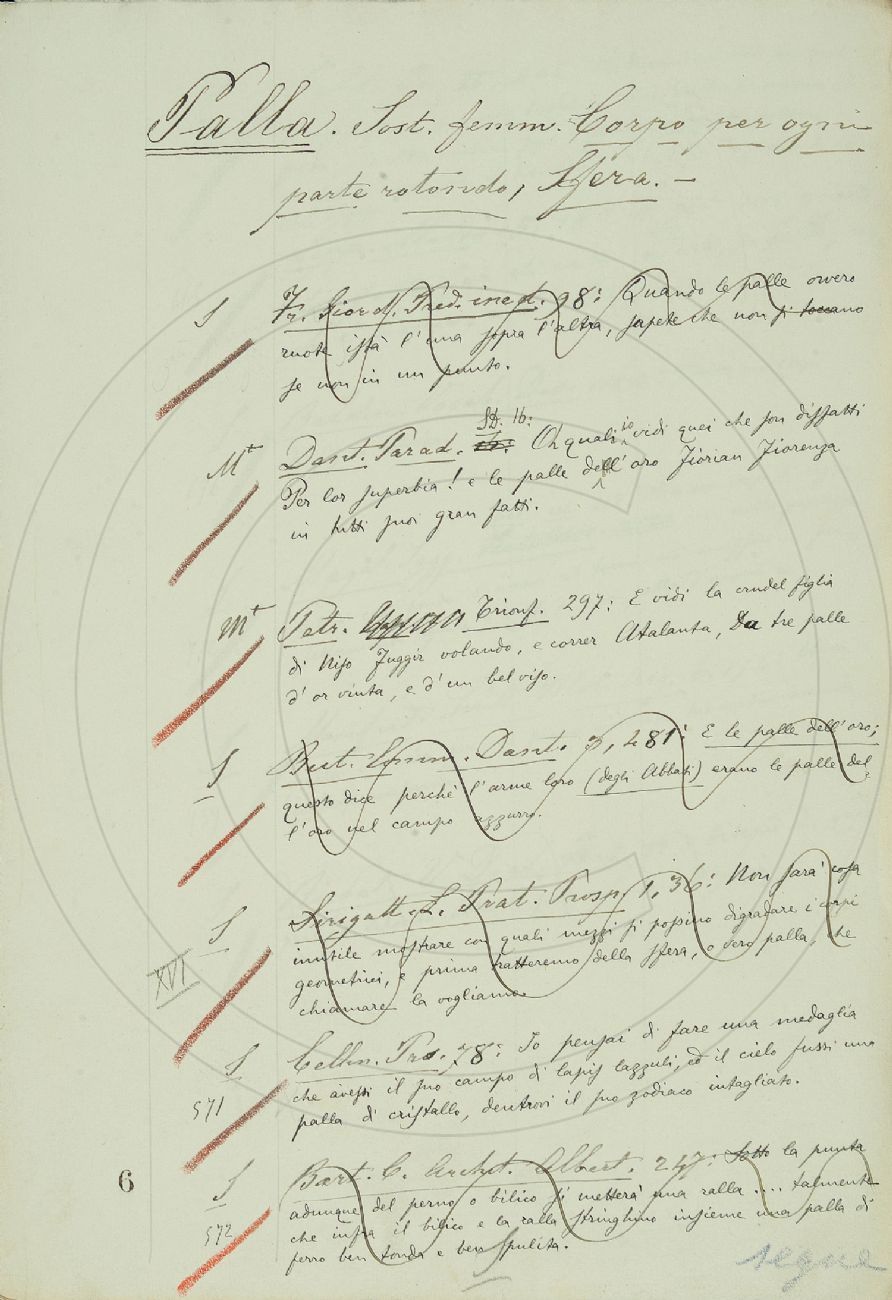 Palla. Sost. femm. Corpo per ogni
parte rotondo, Sfera. —
S Fr. Giord. Pred. ined. 98: Quando le palle ovvero
ruote istà l'una sopra l'altra, sapete che non si toccano
se non in un punto.
Mt Dant. Parad. SD. 16: Oh quali io vidi quei che son disfatti
Per lor superbia! e le palle dell'oro Fiorian Fiorenza
in tutti suoi gran fatti.
Mt Petr. Trionf. 297: E vidi la crudel figlia
di Niso Fuggir volando, e correr Atalanta, Da tre palle
d'or vinta, e d'un bel viso.
S But. Comm. Dant. 3, 481: E le palle dell'oro;
questo dice perchè l'arme loro (degli Abbati) erano le palle del-
l'oro nel campo azzurro.
S Sirigatt. L. Prat. Prosp. 1, 36: Non sarà cosa
XVI inutile mostrare con quali mezzi si possino digradare i corpi
geometrici, e prima tratteremo della sfera, o vero palla, che
chiamare la vogliamo.
S Cellin. Pros. 78: Io pensai di fare una medaglia
571 che avessi il suo campo di lapis lazzuli, ed il cielo fussi una
palla di cristallo, dentrovi il suo zodiaco intagliato.
6 S Bart. C. Archit. Albert. 247: Sotto la punta
572 adunque del perno o bilico si metterà una ralla .... talmente
che infra il bilico e la ralla stringhino insieme una palla di
ferro ben tonda e ben pulita.
segue